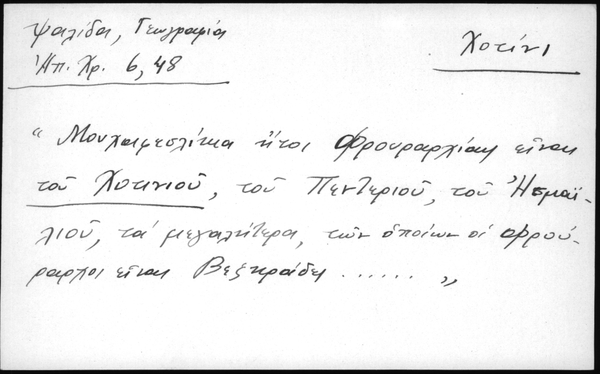 Ψαλίδα, Γεωγραφία
Ἠπ. Χρ. 6, 48
Χοτίνι
" Μουχαφεσλίκια ἤτοι Φρουραρχίαι εἶναι
τοῦ Χοτινιοῦ, τοῦ Πεντεριοῦ, τοῦ Ἠσμαϊ-
λιοῦ, τά μεγαλήτερα, τῶν ὁποίων οἱ φρού-
ραρχοι εἶναι Βεζυράδες ...... "